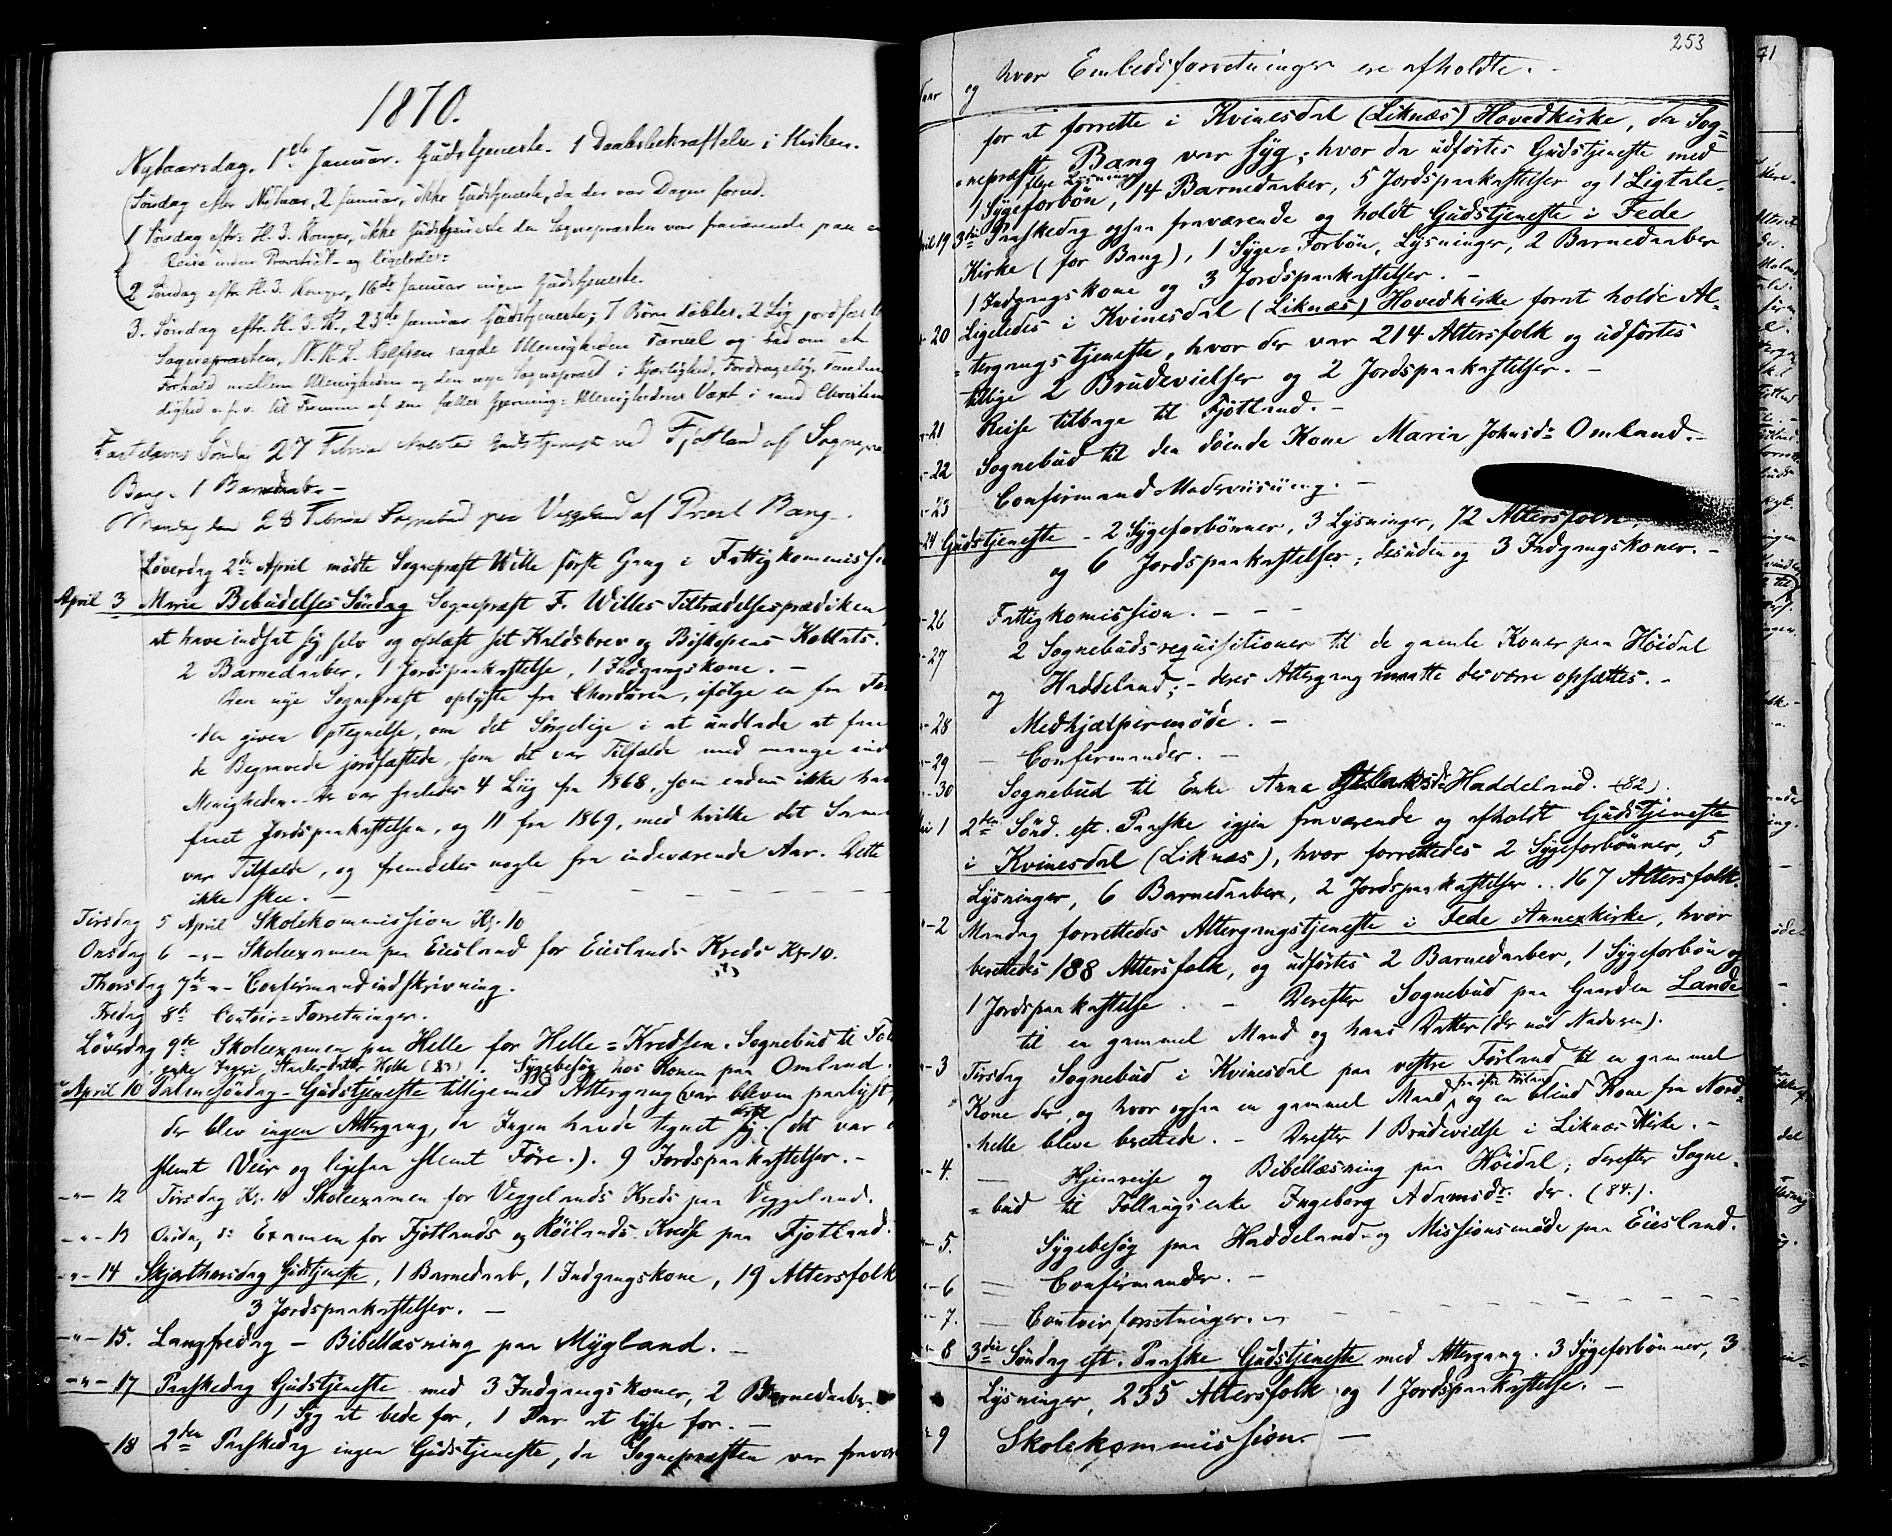 1870.
Nytaarsdag, 1ste Januar. Gudstjeneste. 1 Daabsbekræftelse i Kirken.
Søndag efter Nytaar, 2 Januar, ikke Gudstjeneste, da der var Dagen forud.
1 Søndag eftr. H. 3. Konger, ikke Gudstjeneste da Sognepræsten var fraværende paa
Reise inden Provstiet - og ligeledes:
2 Søndag eftr. H. 3. Konger, 16de Januar ingen Gudstjeneste.
3. Søndag eftr. H. 3. K., 23de Januar Gudstjeneste; 7 Børn døbtes, 2 Lig jordfæst
Sognepræsten, sagde Menigheden Farvel og bad om et
Forhold mellem Menigheden og den nye Sognepræst i Kjærlighed, Fordragelig,
dighed o.s.v. til Fremme af den fælles Gjerning: Menighedens Væxt i sand Christen
Fastelavns Søndag 27 Februar Gudstjeneste ved Fjotland af Sognepr
Bang. 1 Barnedaab. -
Mandag den 28 Februar Sognebud paa Veggeland af Præst Bang.
Løverdag 2den April mødte Sognepræst Wille første Gang i Fattigkommissi
April 3 Marie Bebudelses Søndag Sognepræst F. Willes Tiltrædelsesprædiken
at have indsat sig selv og oplæst sit Kaldsbrev og Biskopens Kollats.
2 Barnedaaber, 1 Jordspaakastelse, 1 Indgangskone. -
Den nye Sognepræst oplyste fra Chordøren, ifølge en fra For
den given Optegnelse, om det Sørgelige i at undlade at faae
de Begravede jordfæstede, som det var Tilfælde med mange ind
Menigheden. Der var saaledes 4 Liig fra 1868, som endnu ikke hav
faaet Jordspaakastelsen, og 11 fra 1869, med hvilke det Samme
var Tilfælde, og fremdeles nogle fra indeværende Aar. Dette
ikke skee. -
Tirsdag 5 April Skolekommission Kl. 10
Onsdag 6 -"- Skoleexamen paa Eiesland for Eieslands Kreds Kl. 10.
Thorsdag 7de -"- Confirmandindskrivning.
Fredag 8de Contoir=Forretninger.
Løverdag 9de Skoleexamen paa Helle for Helle=Kredsen. Sognebud til Fol
enke Helle (83). Sygebesøg hos Konen paa Omland.
April 10 Palmesøndag - Gudstjeneste tilligemed Altergang (var bleven paalyst,
der blev ingen Altergang, da Ingen havde tegnet sig. (det var
slemt Veir og ligesaa slemt Føre.). 9 Jordspaakastelser. -
-"- 12 Tirsdag Kl. 10 Skoleexamen for Veggelands Kreds paa Veggeland.
-"- 13 Onsdag Examen for Fjotlands og Røilands Kredse paa Fjotland.
-"- 14 Skjærthorsdag Gudstjeneste, 1 Barnedaab, 1 Indgangskone, 19 Altersfolk
3 Jordspaakastelser. -
-"- 15. Langfredag - Bibellæsning paa Mygland. -
-"- 17 Paaskedag Gudstjeneste med 3 Indgangskoner, 2 Barnedaaber
1 Syg at bede for, 1 Par at lyse for. -
- 18 2den Paaskedag ingen Gudstjeneste, da Sognepræsten var fravær
253
Naar og hvor Embedsforretninger ere afholdte. -
for at forrette i Kvinesdal (Liknæs) Hovedkirke, da Sog=
=nepræst Bang var syg; hvor da udførtes Gudstjeneste med
flere Lysninger
1 Sygeforbøn, 14 Barnedaaber, 5 Jordspaakastelser og 1 Ligtale.
April 19 3die Paaskedag ogsaa fraværende og holdt Gudstjeneste i Fede
Kirke (for Bang), 1 Syge=Forbøn, Lysninger, 2 Barnedaaber
1 Indgangskone og 3 Jordspaakastelser. -
- 20 Ligeledes i Kvinesdal (Liknæs) Hovedkirke foruden at holde Al-
=tergangstjeneste, hvor der var 214 Altersfolk og udførtes
tillige 2 Brudevielser og 2 Jordspaakastelser. -
- 21 Reise tilbage til Fjotland. -
- 22 Sognebud til den døende Kone Maria Johnsdr Omland. -
- 23 Confirmand Underviisning. -
- 24 Gudstjeneste - 2 Sygeforbønner, 3 Lysninger, 72 Altersfolk,
og 6 Jordspaakastelser; desuden og 3 Indgangskoner. -
- 26 Fattigkomission. - - -
- 27 2 Sognebudsrequisitioner til de gamle Koner paa Høidal
og Haddeland; - deres Altergang maatte desværre opsættes. -
- 28 Medhjælpermøde. -
- 29 Confirmander. -
- 30 Sognebud til Enke Anna Aslaksdr Haddeland. (82).
Mai 1 2den Sønd. eft. Paaske igjen fraværende og afholdt Gudstjeneste
i Kvinesdal (Liknæs), hvor forrettedes 2 Sygeforbønner, 5
Lysninger, 6 Barnedaaber, 2 Jordspaakastelser .. 167 Altersfolk.
- 2 Mandag forrettedes Altergangstjeneste i Fede Annexkirke, hvor
berettedes 188 Altersfolk, og udførtes 2 Barnedaaber, 1 Sygeforbøn og
1 Jordspaakastelse. - Derefter Sognebud paa Gaarden Lande
til en gammel Mand og hans Datter (der nød Nadveren).
- 3 Tirsdag Sognebud i Kvinesdal paa vestre Førland til en gammel
fra østre Førland
Kone der, og hvor ogsaa en gammel Mand, og en blind Kone fra Nord=
=helle bleve berettede. - Derefter 1 Brudevielse i Liknæs Kirke. -
- 4. Hjemreise og Bibellæsning paa Høidal; derefter Sogne=
=bud til Føllaugsenke Ingeborg Adamsdr. der. (84.).
- 5. Sygebesøg paa Haddeland og Missionsmøde paa Eiesland.
- 6 Confirmander. -
- 7. Contoirforretninger.
- 8 3die Søndag eft. Paaske Gudstjeneste med Altergang. 3 Sygeforbønner, 3
Lysninger, 235 Altersfolk og 1 Jordspaakastelse. -
- 9 Skolekommission. -
71